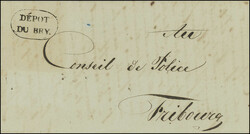 DÉPÔT
DU BRY.
Au
Conseil de Police
Fribourg